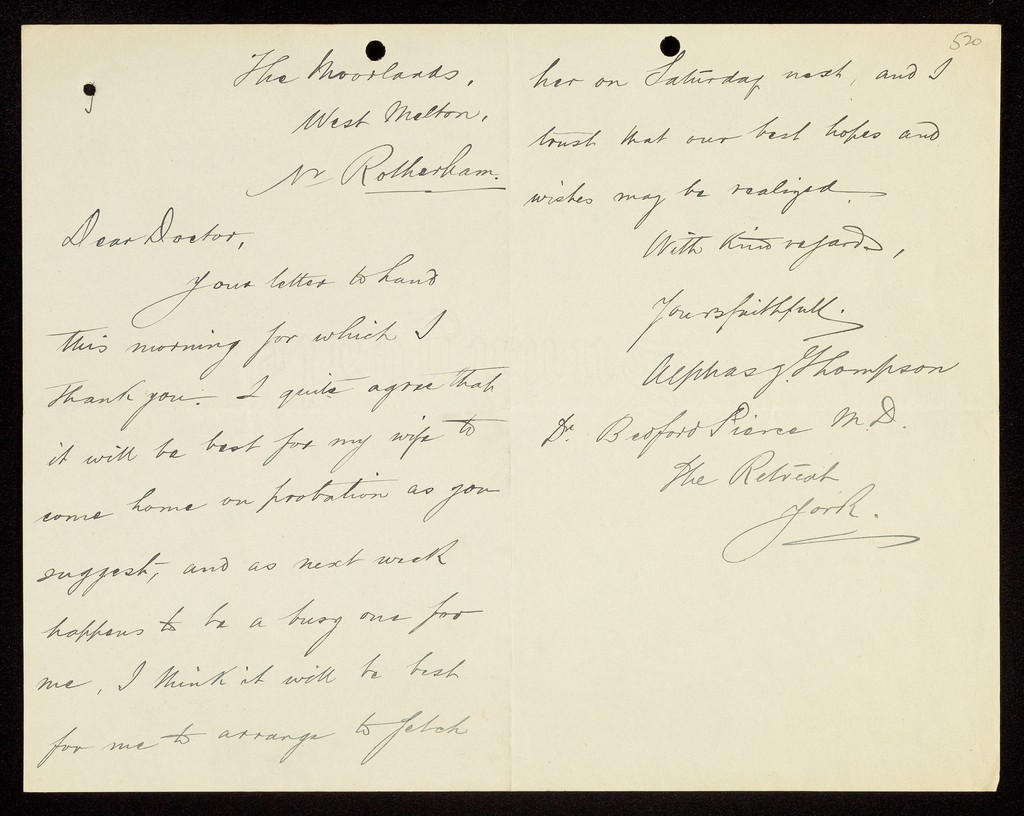 The Moorlands,
West Melton,
Nr Rotherham.
Dear Doctor,
Your letter to hand
this morning for which I
thank you. I quite agree that
it will be best for my wife to
come home on probation as you
suggest, and as next week
happens to be a busy one for
me, I think it will be best
for me to arrange to fetch
520
her on Saturday next, and I
trust that our best hopes and
wishes may be realized.
With kind regards,
Yours faithfull.
Alphas J. Thompson
Dr. Bedford Pierce M.D.
The Retreat
York.